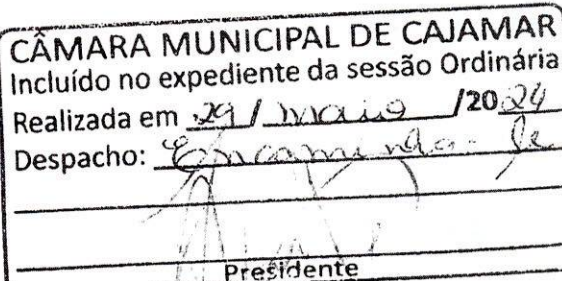 CÂMARA MUNICIPAL DE CAJAMAR
Incluído no expediente da sessão Ordinária
Realizada em 29 / maio /2024
Despacho: Encaminda-se
Presidente